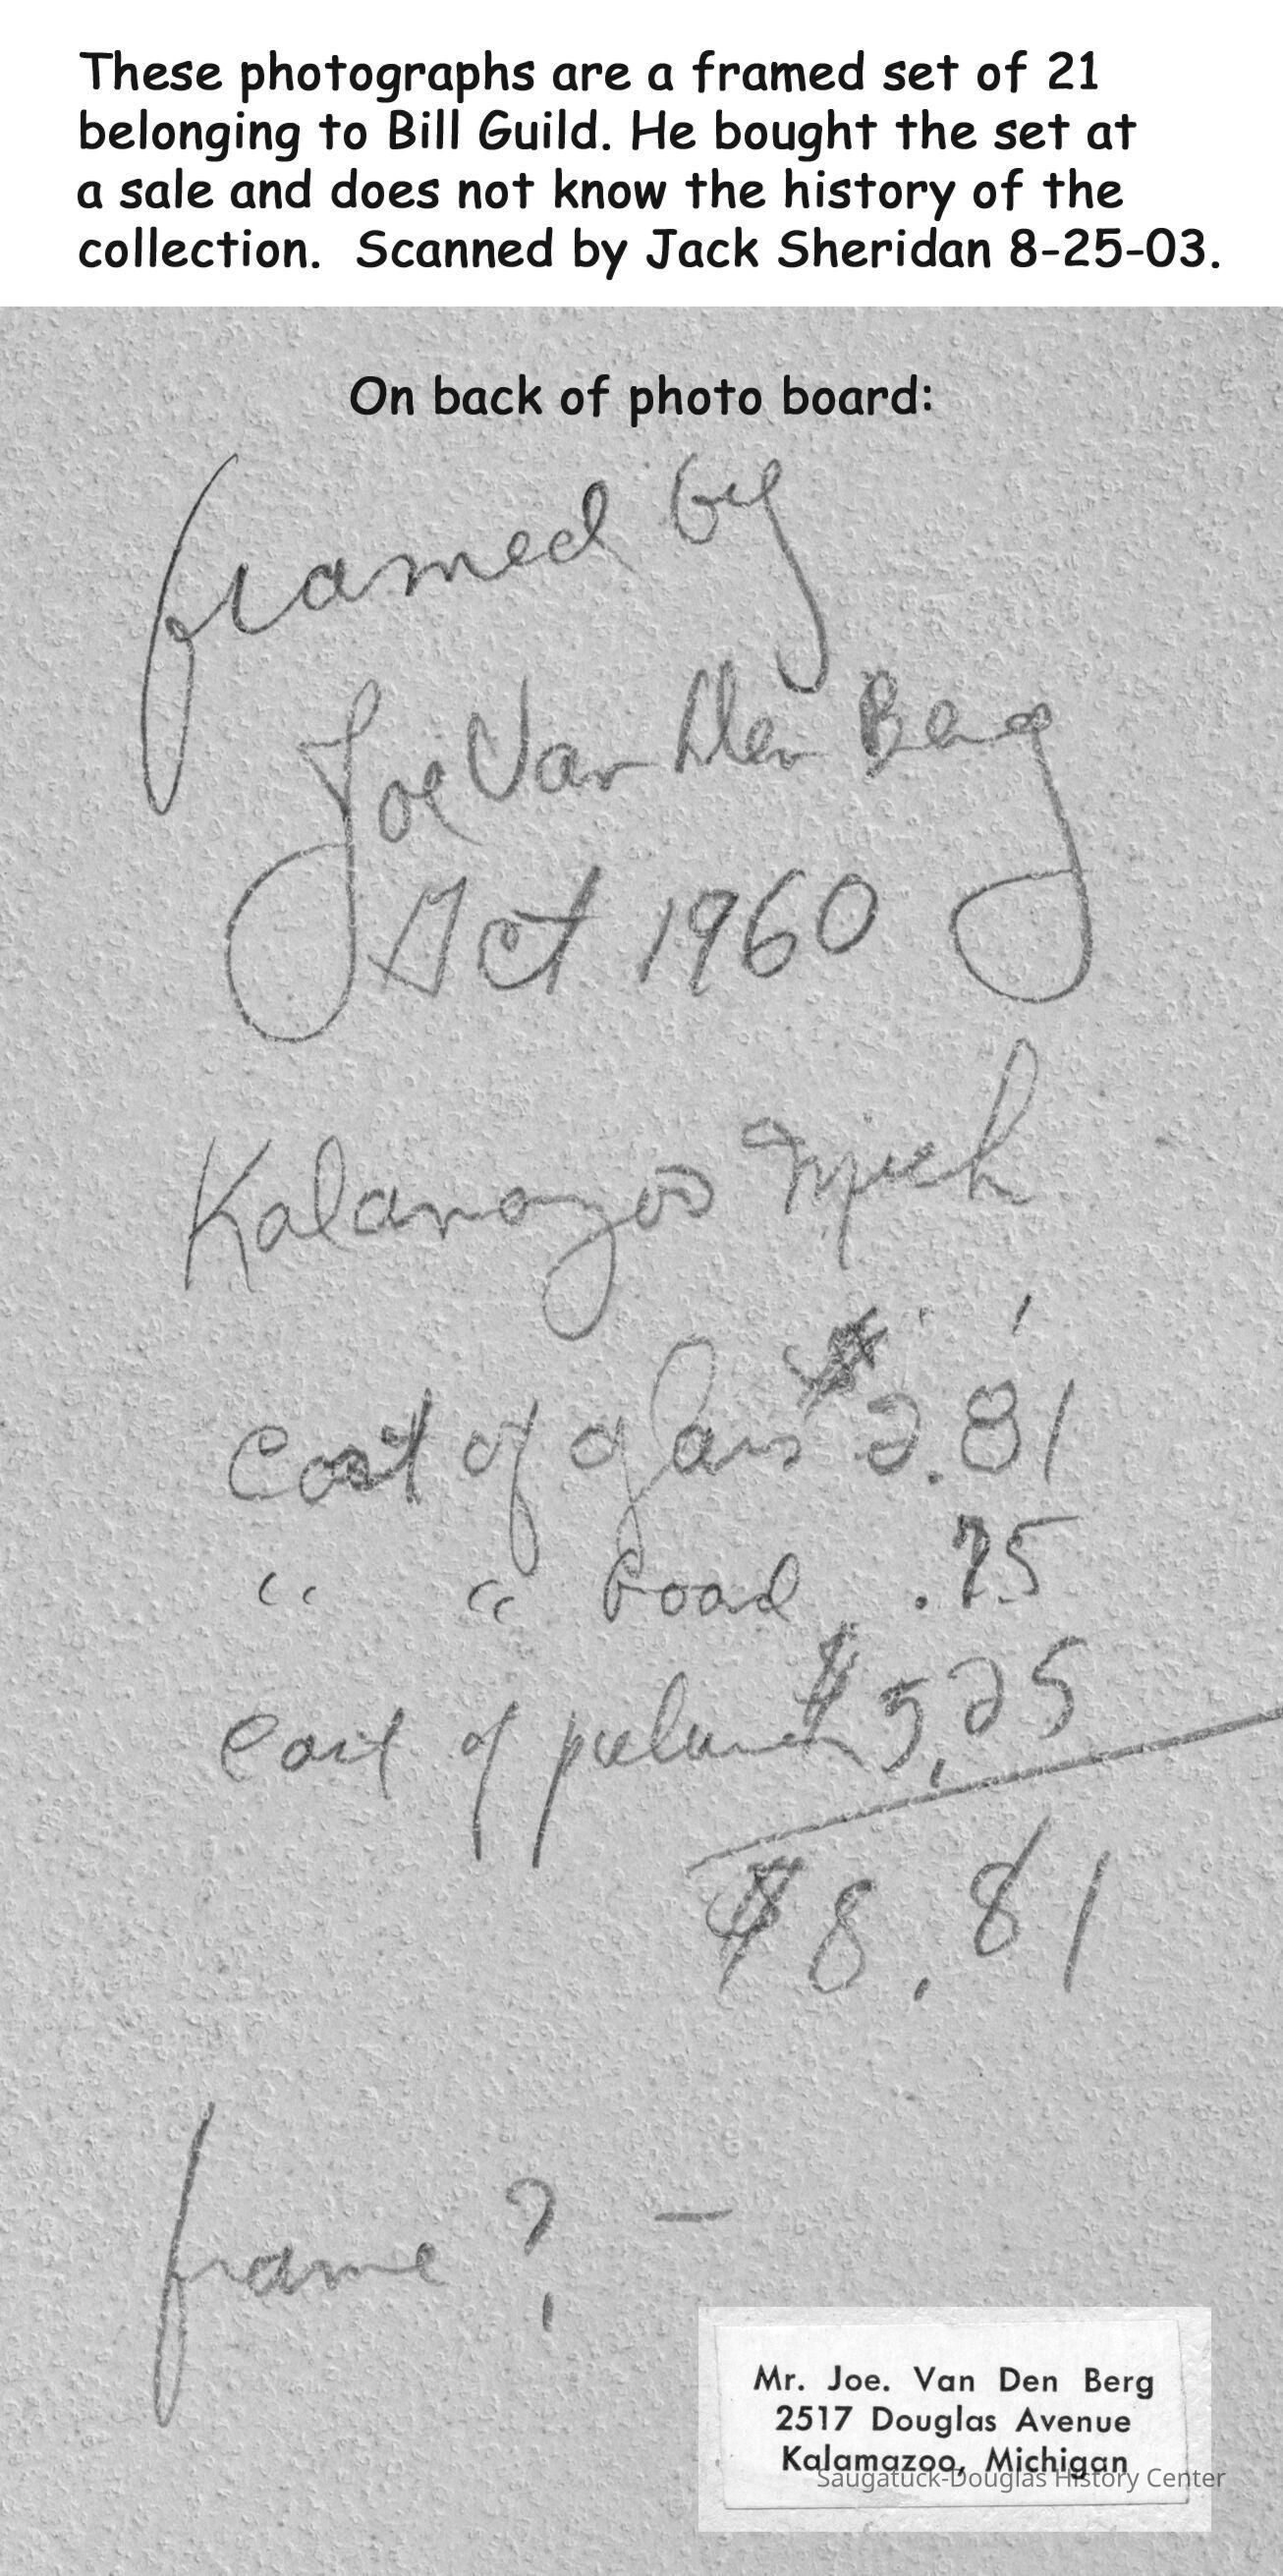 These photographs are a framed set of 21
belonging to Bill Guild. He bought the set at
a sale and does not know the history of the
collection. Scanned by Jack Sheridan 8-25-03.
On back of photo board:
framed by
Joe Van Den Berg
Oct 1960
Kalamazoo Mich
Cost of glass $2.81
" " board .75
Cost of $5.25
$8.81
frame ? —
Mr. Joe. Van Den Berg
2517 Douglas Avenue
Kalamazoo, Michigan
Saugatuck-Douglas History Center